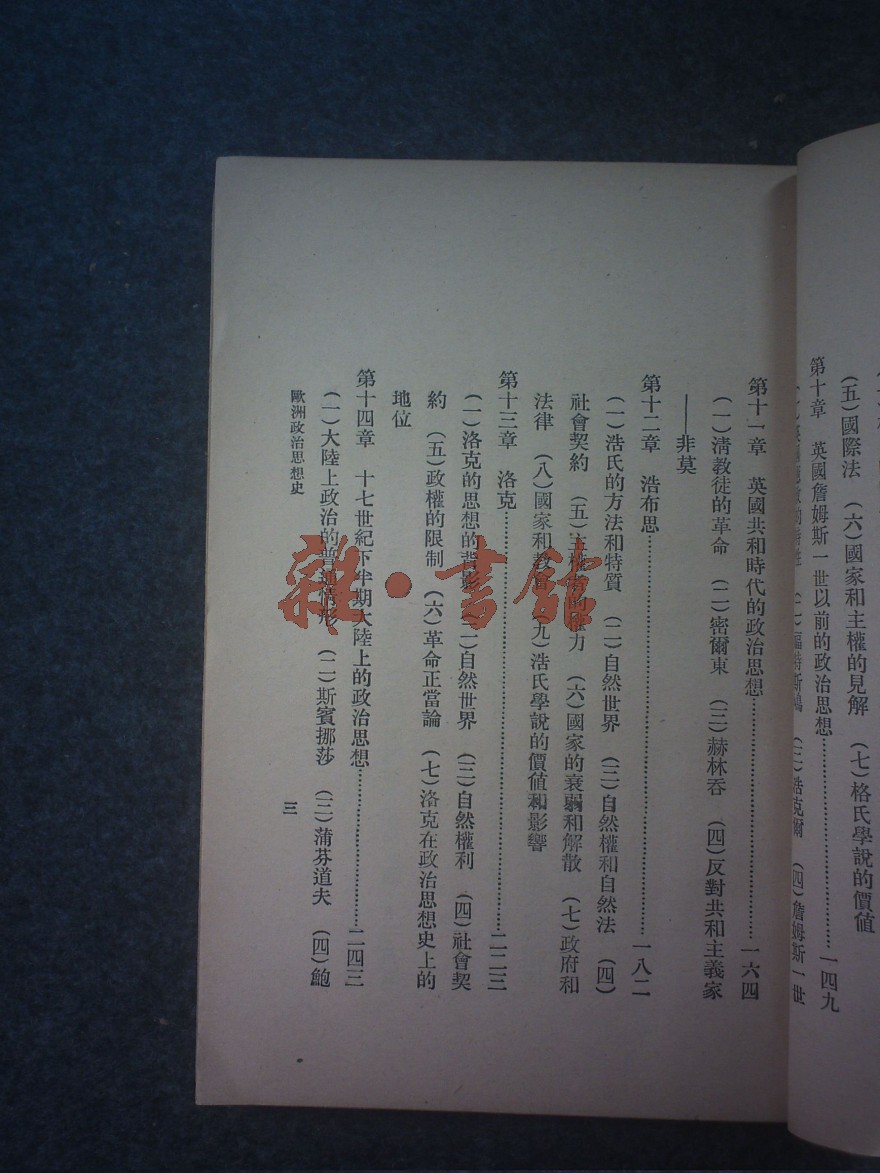 (五)國際法 (六)國家和主權的見解 (七)格氏學說的價値
第十章 英國詹姆斯一世以前的政治思想…………一四九
(二)福特斯鳩 (三)浩克爾 (四)詹姆斯一世
第十一章 英國共和時代的政治思想…………一六四
(一)淸教徒的革命 (二)密爾東 (三)赫林呑 (四)反對共和主義家
——非莫
第十二章 浩布思…………一八二
(一)浩氏的方法和特質 (二)自然世界 (三)自然權和自然法 (四)
社會契約 (五)主權者的權力 (六)國家的衰弱和解散 (七)政府和
法律 (八)國家和教會 (九)浩氏學說的價値和影響
第十三章 洛克…………二二三
(一)洛克的思想的背影 (二)自然世界 (三)自然權利 (四)社會契
約 (五)政權的限制 (六)革命正當論 (七)洛克在政治思想史上的
地位
第十四章 十七世紀下半期大陸上的政治思想…………二四三
(一)大陸上政治的普通情形 (二)斯賓挪莎 (三)蒲芬道夫 (四)鮑
歐洲政治思想史
三
雜·書館